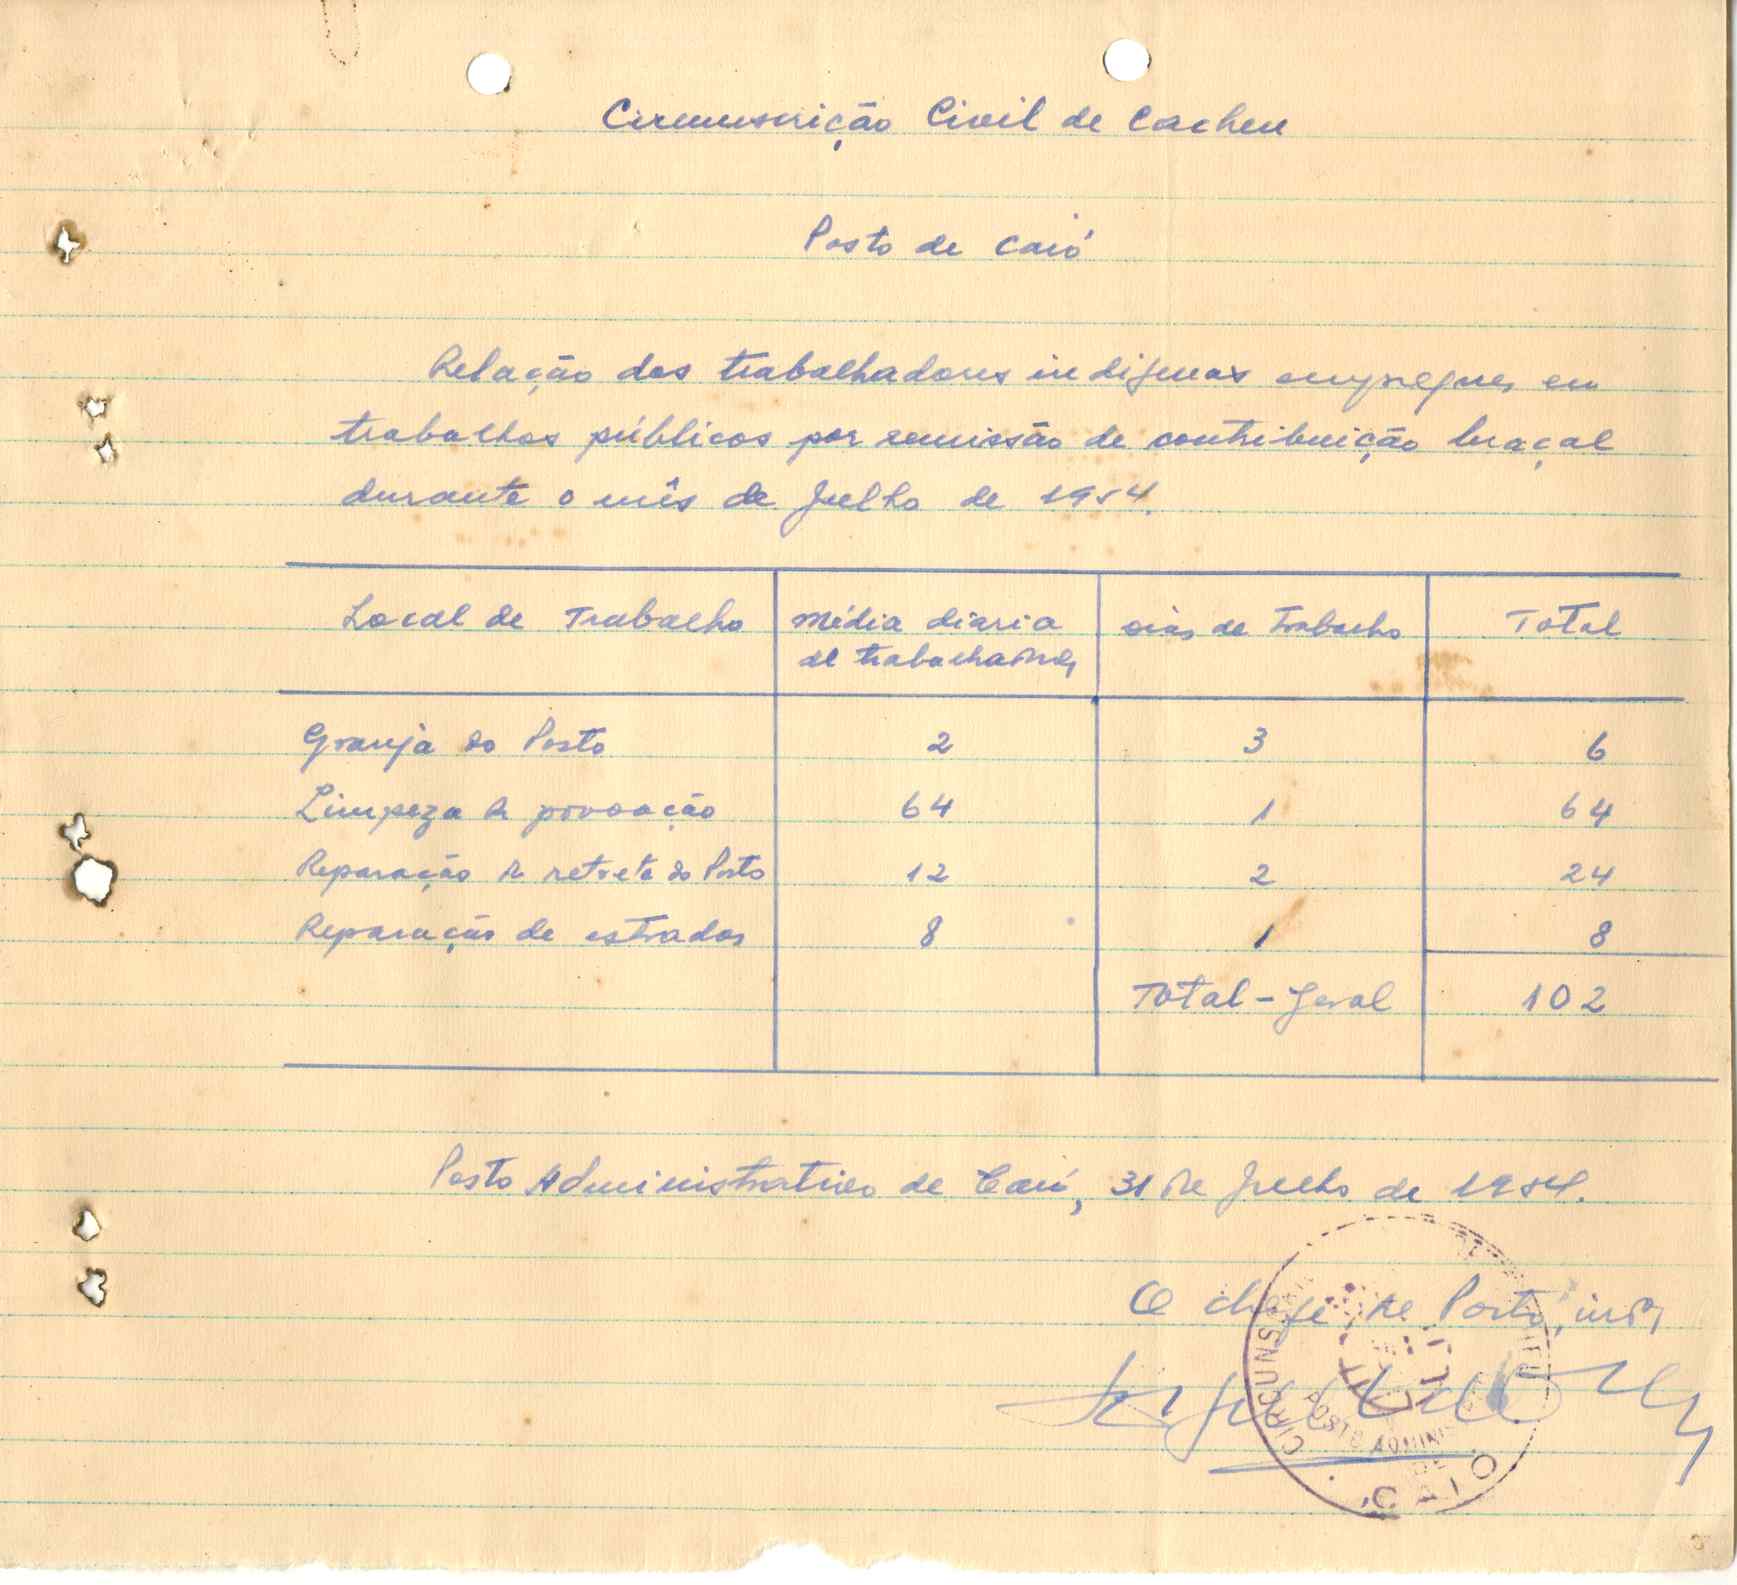 Circunscrição Civil de Cacheu
Posto de Caió
Relação dos trabalhadores indigenas empregues em
trabalhos públicos por remissão de contribuição braçal
durante o mês de Julho de 1954.
Local de Trabalho Média diaria de trabalhadores dias de Trabalho Total
Granja do Posto 2 3 6
Limpeza de povoação 64 1 64
Reparação de retrete do Posto 12 2 24
Reparação de estradas 8 1 8
Total-Geral 102
Posto Administrativo de Caió, 31 de Julho de 1954.
O chefe de Posto,
CIRCUNS
POSTO ADMINIS
DE
CAIÓ